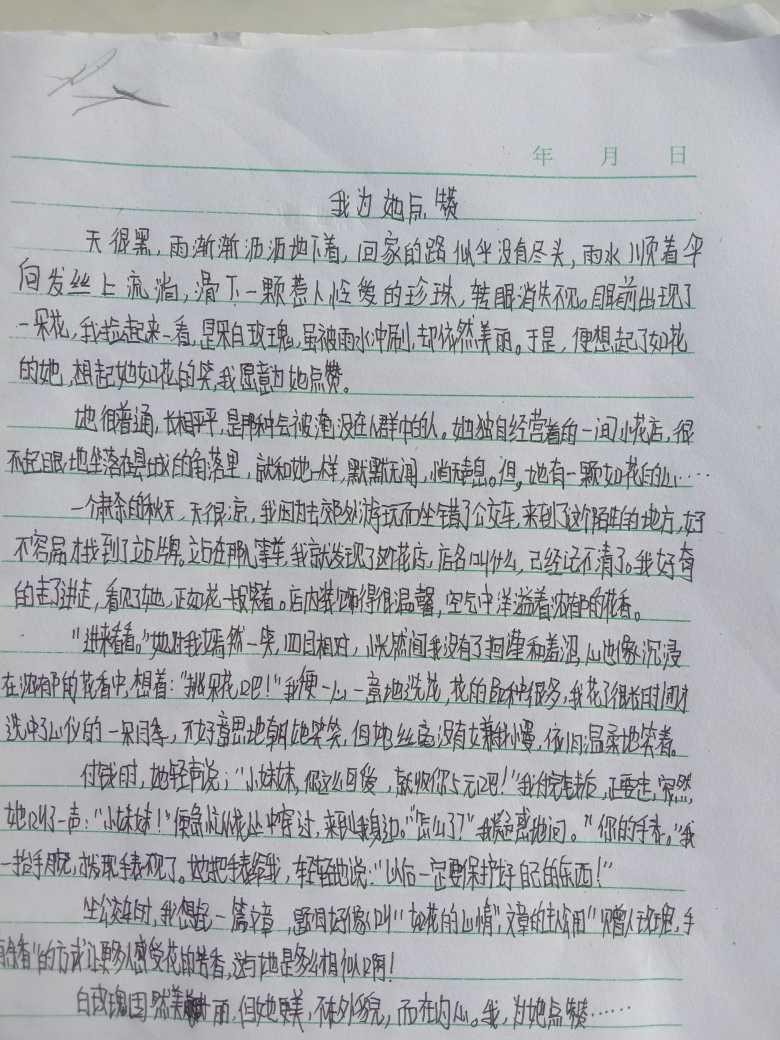 年 月 日
我为她点赞
天很黑,雨渐渐沥沥地下着,回家的路似乎没有尽头,雨水顺着伞
向发丝上流淌,滑下一颗惹人怜爱的珍珠,转眼消失不见。眼前出现了
一朵花,我捡起来一看,是朵白玫瑰,虽被雨水冲刷,却依然美丽。于是,便想起了如花
的她,想起她如花的笑,我愿意为她点赞。
她很普通,长相平平,是那种会被淹没在人群中的人。她独自经营着的一间小花店,很
不起眼地坐落在县城的角落里,就和她一样,默默无闻,悄无声息。但,她有一颗如花的心……
一个肃杀的秋天,天很凉,我因为去郊外游玩而坐错了公交车,来到了这个陌生的地方,好
不容易才找到了立站牌,站在那儿等车,我就发现了这个花店,店名叫什么,已经记不清了。我好奇
的走了进走,看见了她,正如花一般笑着。店内装饰得很温馨,空气中洋溢着浓郁的花香。
"进来看看。"她对我嫣然一笑,四目相对,恍然间我没有了拘谨和羞涩,心也像沉浸
在浓郁的花香中,想着:"挑朵花吧!"我便一心一意地选花,花的品种很多,我花了很长时间才
选中了心仪的一朵冬,不好意思地朝她笑笑,但她丝毫没有嫌我慢,依旧温柔地笑着。
付钱时,她轻声说:"小妹妹,你这么可爱,就收你5元吧!"我付完钱后,正要走,突然,
她叫了一声:"小妹妹!"便急忙从花丛中穿过,来到我身边。"怎么了?"我疑惑地问。"你的手表。"我
一抬手腕,才发现手表不见了。她把手表给我,轻轻地说:"以后一定要保护好自己的东西!"
坐公交车时,我想起一篇文章,题目好像叫"如花的心情",文章的主人公用"赠人玫瑰,手
有余香"的方式让更多人感受花的芳香,这与她是多么相似啊!
白玫瑰固然美丽,但她更美,不在外貌,而在内心。我,为她点赞……